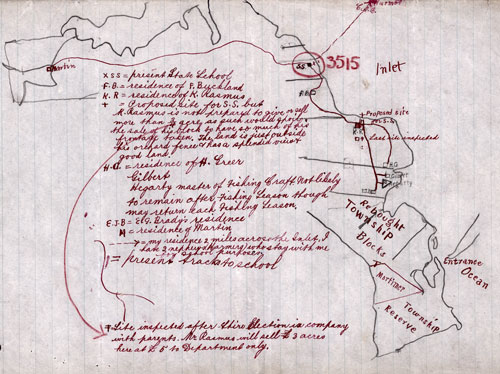 Warner
3515
S.S.
Inlet
Martin
x SS = present State School
F.B. = residence of F. Buckland
K.R = residence of K. Rasmus
+ = Proposed Site for S.S. but
K. Rasmus is not prepared to give or sell
more than ½ acre as such would spoil
the sale of his block to have so much of his
frontage taken. The land is just outside
his orchard fence & has a splendid view &
good land.
H.G. = residence of H. Greer
Gilbert
Hegarty master of Fishing Craft. Not likely
to remain after Fishing Season though
may return each Fishing Season.
E.J.B = E.J. Brady's residence
M = residence of Martin
= my residence 2 miles across the Inlet. I
have 2 nephews (Warners) who stay with me
for school purposes
= present track to school
F.B.
+ Proposed Site
for S.S.
K.R.
Last site inspected
H.G.
Gilbert
Hegarty
E.J.B.
Re-bought
Township
Blocks
Mortimer
Township
Reserve
Entrance
Ocean
+ Site inspected after third Election in company
with parents. Mr Rasmus will sell 3 acres
here at £5 to Department only.